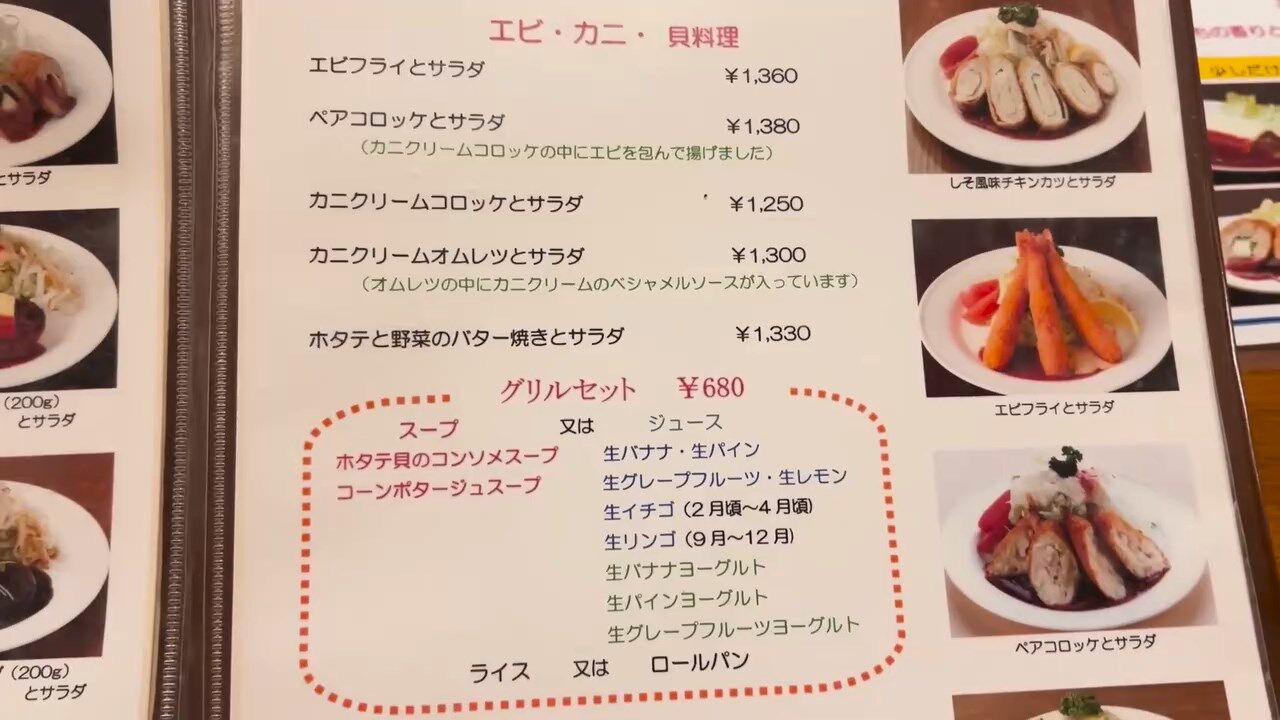 エビ・カニ・ 貝料理
エビフライとサラダ ￥1,360
ペアコロッケとサラダ ￥1,380
（カニクリームコロッケの中にエビを包んで揚げました）
カニクリームコロッケとサラダ ￥1,250
カニクリームオムレツとサラダ ￥1,300
（オムレツの中にカニクリームのベシャメルソースが入っています）
ホタテと野菜のバター焼きとサラダ ￥1,330
グリルセット ￥680
スープ 又は ジュース
ホタテ貝のコンソメスープ 生バナナ・生パイン
コーンポタージュスープ 生グレープフルーツ・生レモン
生イチゴ（2月頃～4月頃）
生リンゴ（9月～12月）
生バナナヨーグルト
生パインヨーグルト
生グレープフルーツヨーグルト
ライス 又は ロールパン
しそ風味チキンカツとサラダ
エビフライとサラダ
ペアコロッケとサラダ
とサラダ
（200g）
とサラダ
（200g）
とサラダ
の香りと
少しだけ